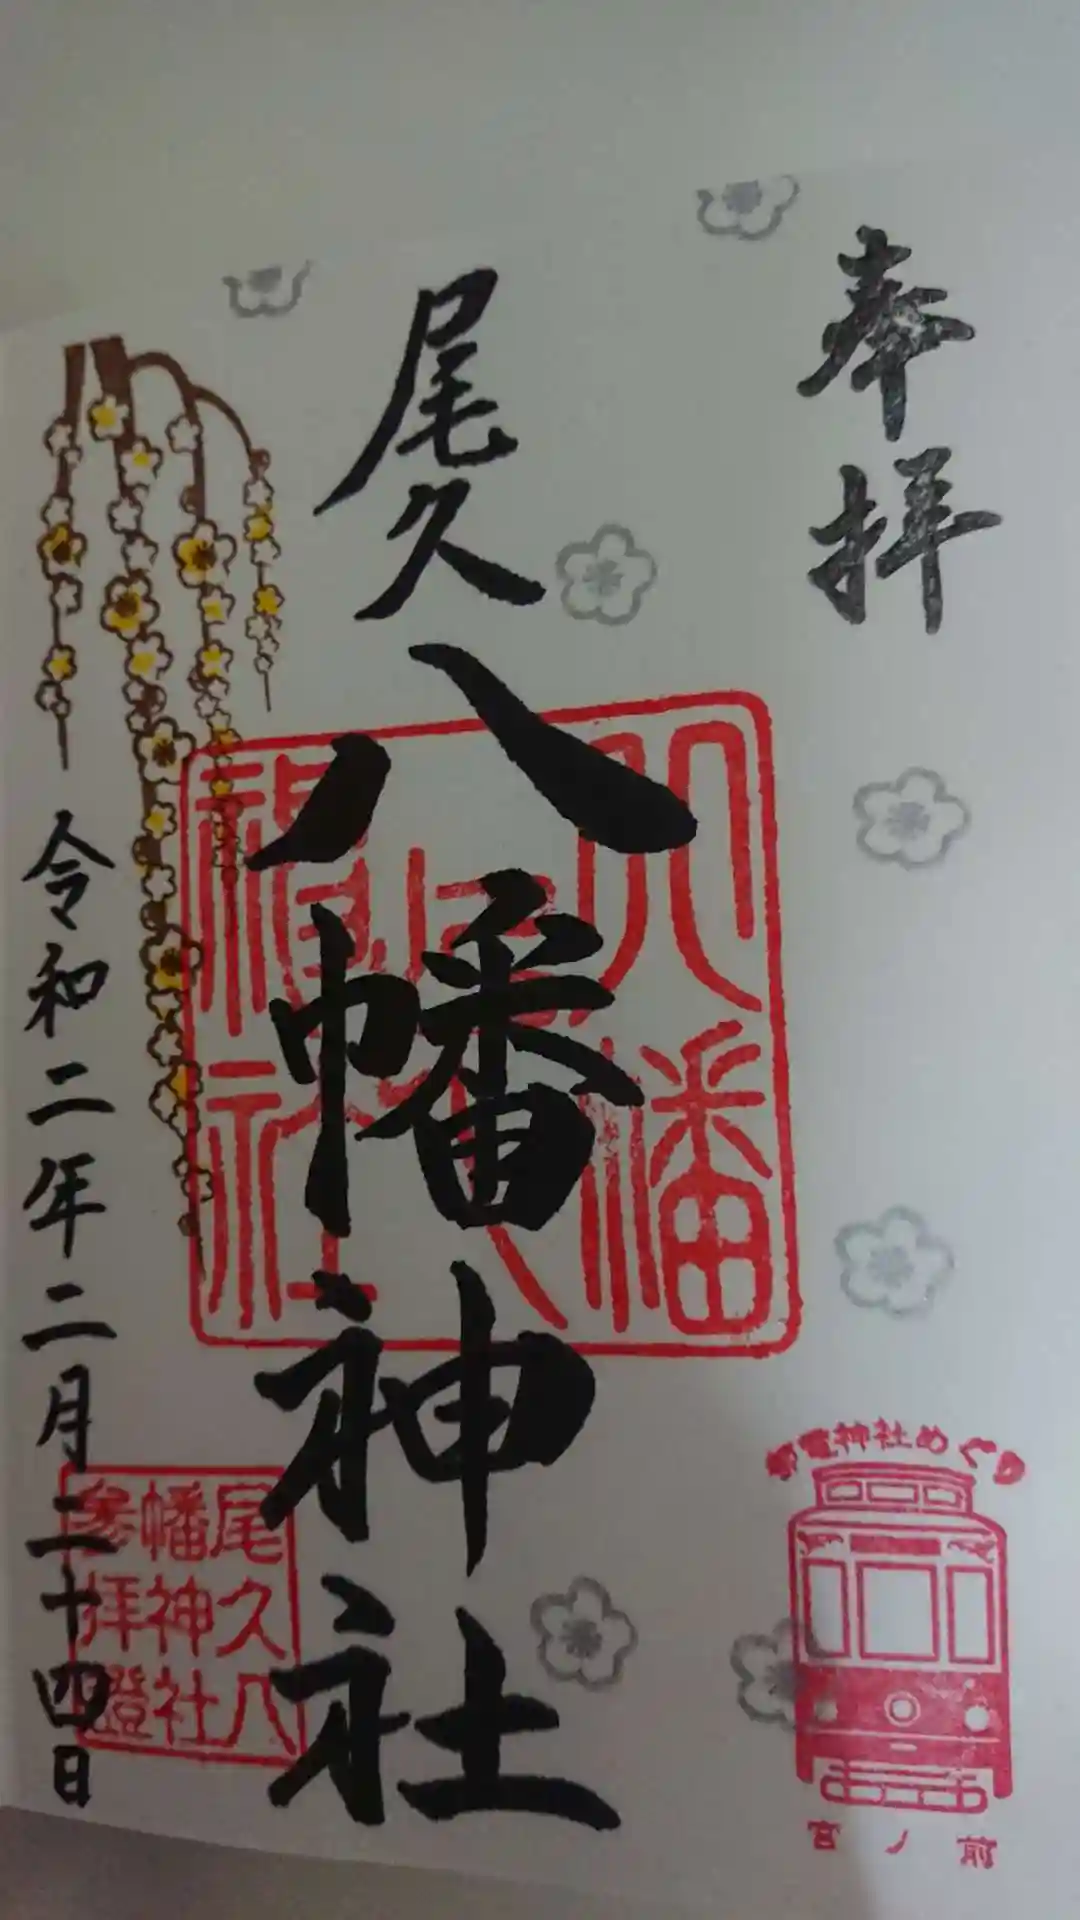 奉拝
尾久八幡神社
令和二年二月二十四日
八幡
神社
尾久八
幡神社
参拝證
電神社めぐり
宮ノ前